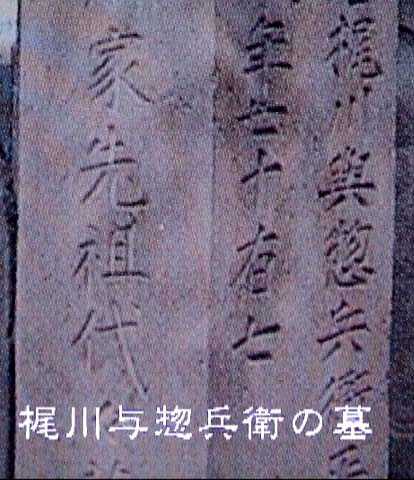 梶川與惣兵衛
年七十有七
家先祖代
梶川与惣兵衛の墓